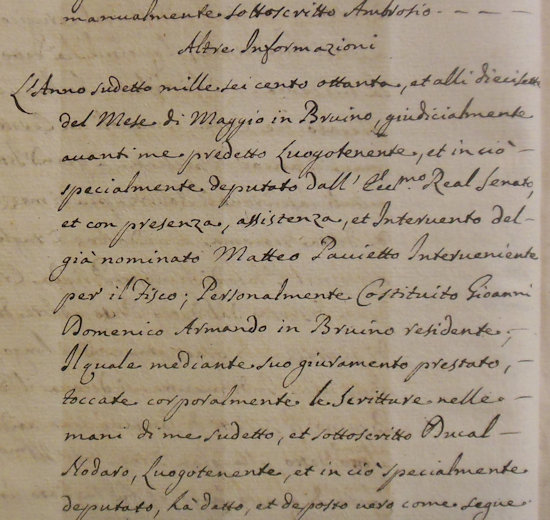 manualmente sottoscritto Ambrosio - - - -
Altre Informazioni
L'Anno sudetto mille sei cento ottanta, et alli diecisette
del Mese di Maggio in Bruino, giudicialmente
avanti me predetto Luogotenente, et in ciò -
specialmente deputato dall' Ecc.mo Real Senato,
et con presenza, assistenza, et Intervento del-
già nominato Matteo Pavietto Interveniente
per il Fisco; Personalmente Costituito Gioanni
Domenico Armando in Bruino residente, -
Il quale mediante suo giuramento prestato, -
toccate corporalmente le Scritture nelle -
mani di me sudetto, et sottoscritto Ducal -
Nodaro, Luogotenente, et in ciò specialmente
deputato, hà detto, et deposto vero come segue